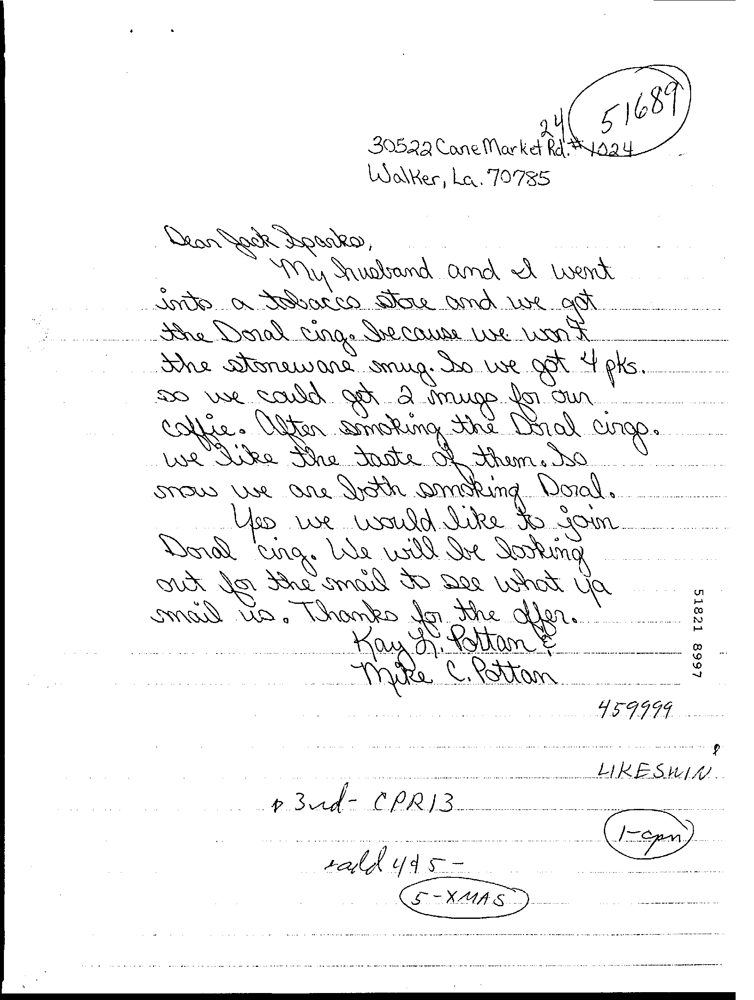 51689
24
30522 Cane Market Rd. # 1024
Walker, La. 70785
Dear Jack Sparks,
My husband and I went
into a tobacco store and we got
the Doral cirg. because we won't
the stoneware mug. So we got 4 pks.
so we could get 2 mugs for our
coffie. After smoking the Doral cirgs.
we like the taste of them. So
now we are both smoking Doral.
Yes we would like to join
Doral cirg. We will be looking
out for the mail to see what ya
mail us. Thanks for the offer.
Kay L. Pottan &
Mike C. Pottan
51821 8997
459999
LIKESWIN
3rd - CPR13
1-cpn
add 4 & 5 -
5-XMAS